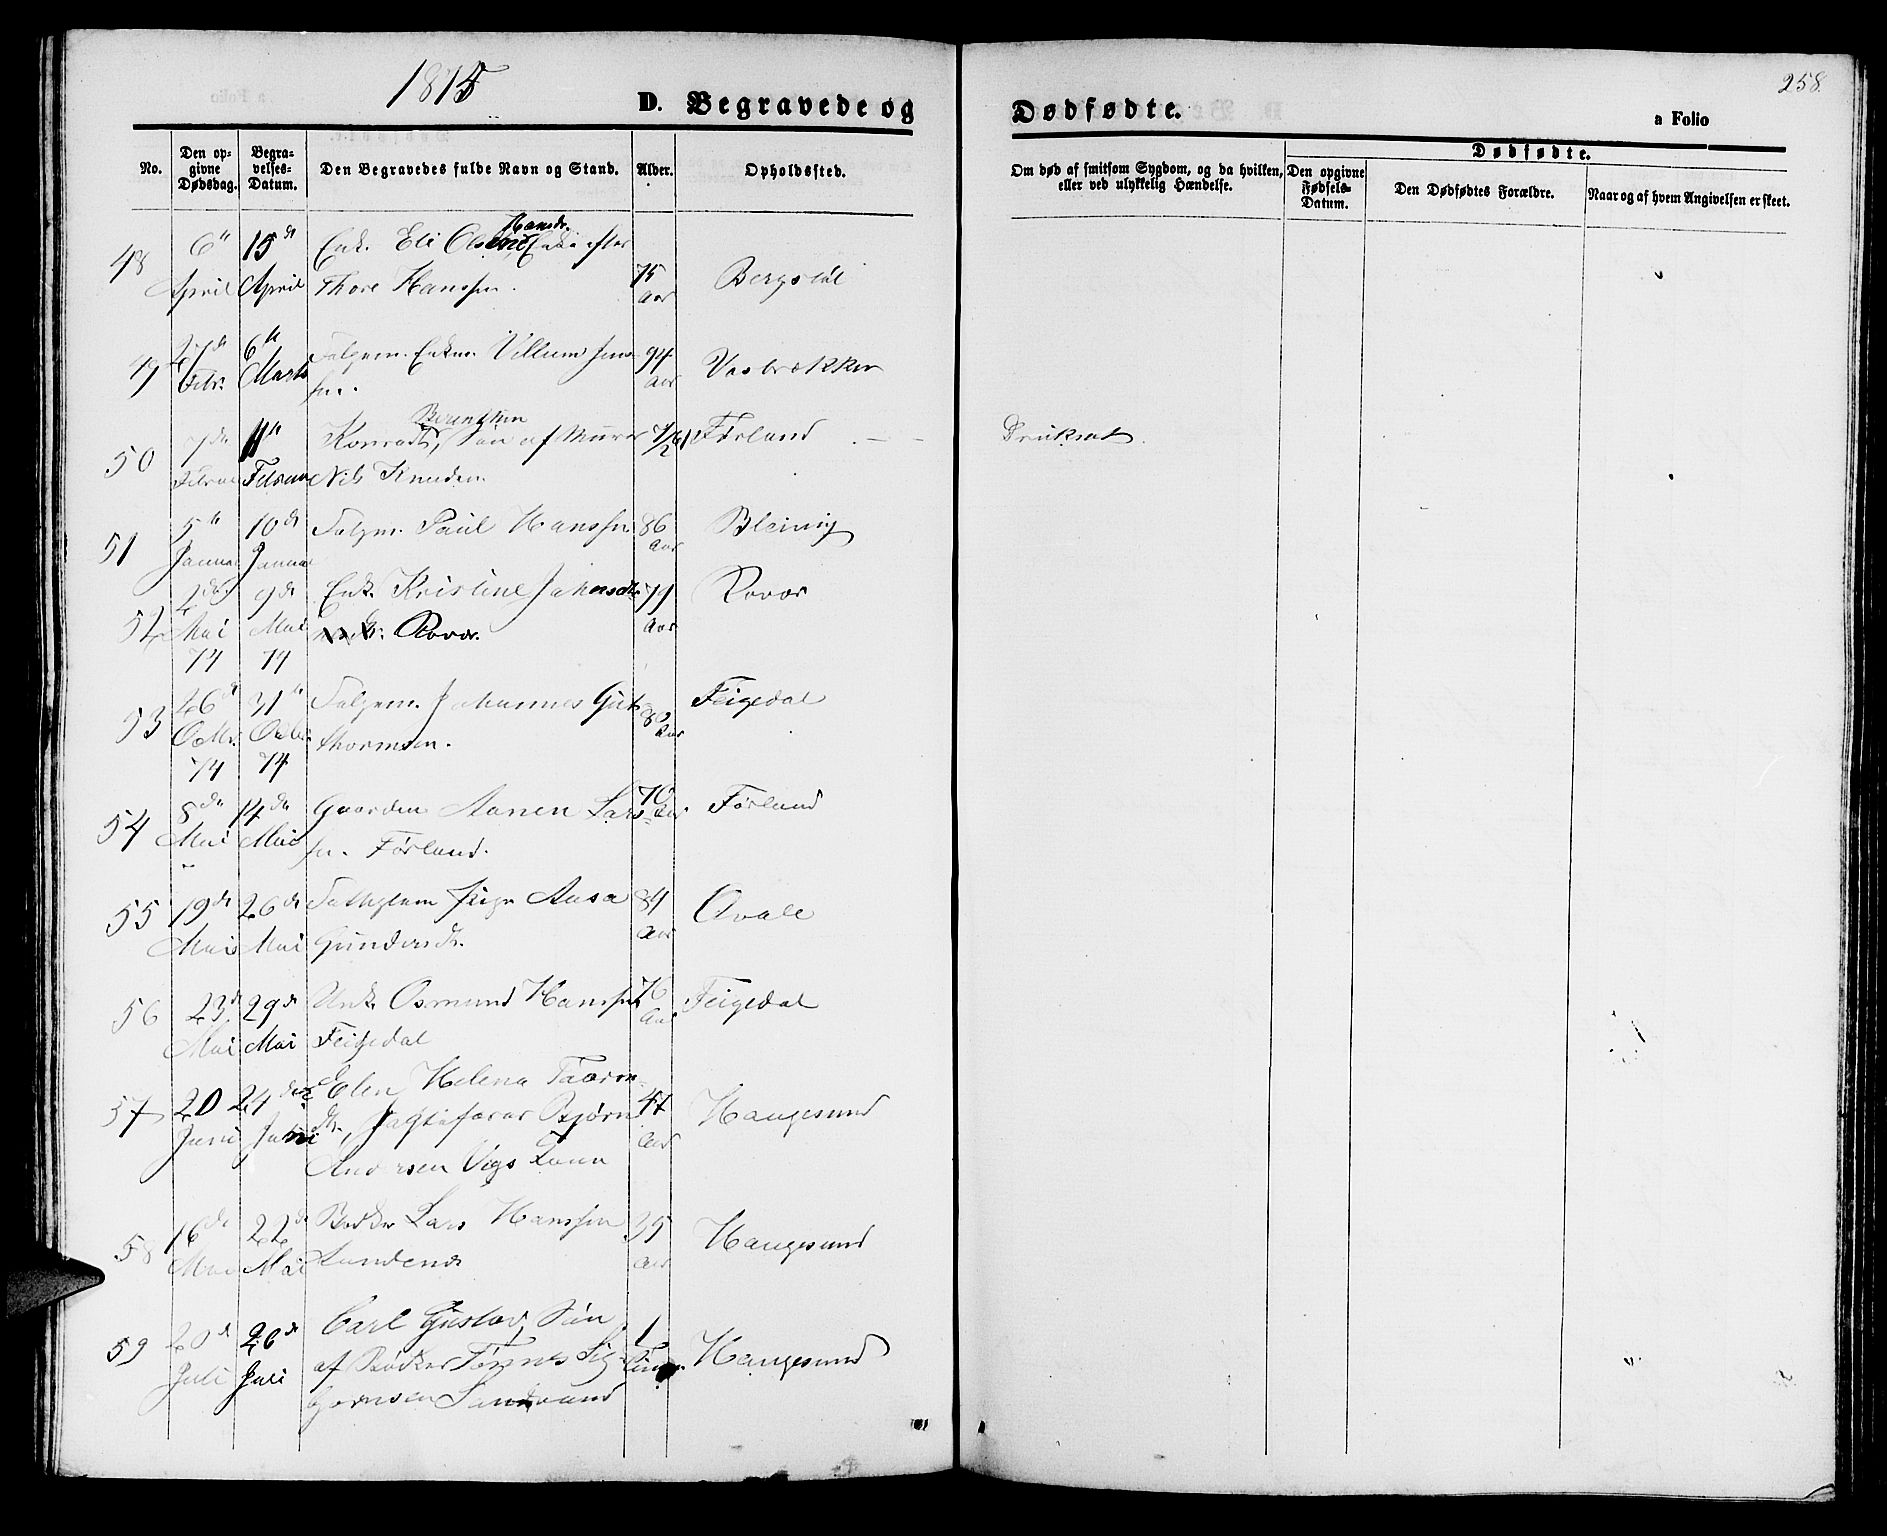 1875
258.
D. Begravede og
Dødfødte.
a Folio
No.
Den op-
givne
Dødsdag.
Begra-
velses-
Datum.
Den Begravedes fulde Navn og Stand.
Alder.
Opholdssted.
Om død af smitsom Sygdom, og da hvilken,
eller ved ulykkelig Hændelse.
Dødfødte.
Den opgivne
Fødsels-
Datum.
Den Dødfødtes Forældre.
Naar og af hvem Angivelsen er skeet.
48 6te April 15de April Enke Eli Hansdr. Enke efter
Thore Hanssen. 75 Aar Bergstøl
49 27de Febr. 6te Marts Folgem. Enkem. Villum Jens-
sen. 94 Aar Vasbrækken
50 7de Februar 11te Februar Konrad Berentsen, Søn af Murer
Nils Knudsen. 7/12 Førland Druknet.
51 5te Januar 10de Januar Folgm. Paul Hanssen 86 Aar
52 2den Mai 74 9de Mai 74 Enke Kristine Johnsdtr.
Rovær. 79 Aar Rovær
53 26de Octbr. 74 31te Octbr. 74 Folgem. Johannes Gut-
thormsen. 80 Aar Feigedal
54 8de Mai 14de Mai Gaardm. Aanen Lars-
sen. Førland. 70 Aar Førland
55 19de Mai 26de Mai Aasa
Gundersdtr. 84 Aar Qvale
56 23de Mai 29de Mai Osmund Hanssen
Feigedal 76 Aar Feigedal
57 20 Juni 24de Juni Elen Helena
dtr., Jagtefører Bjørn
Andersen Vigs Kone 47 Aar Haugesund
58 16de Mai 22de Mai Bødker Lars Hanssen
35 Aar Haugesund
59 20de Juli 26de Juli Carl Gustav, Søn
af Bødker Tønnes Sig-
bjørnsen Sandvand 1 Haugesund